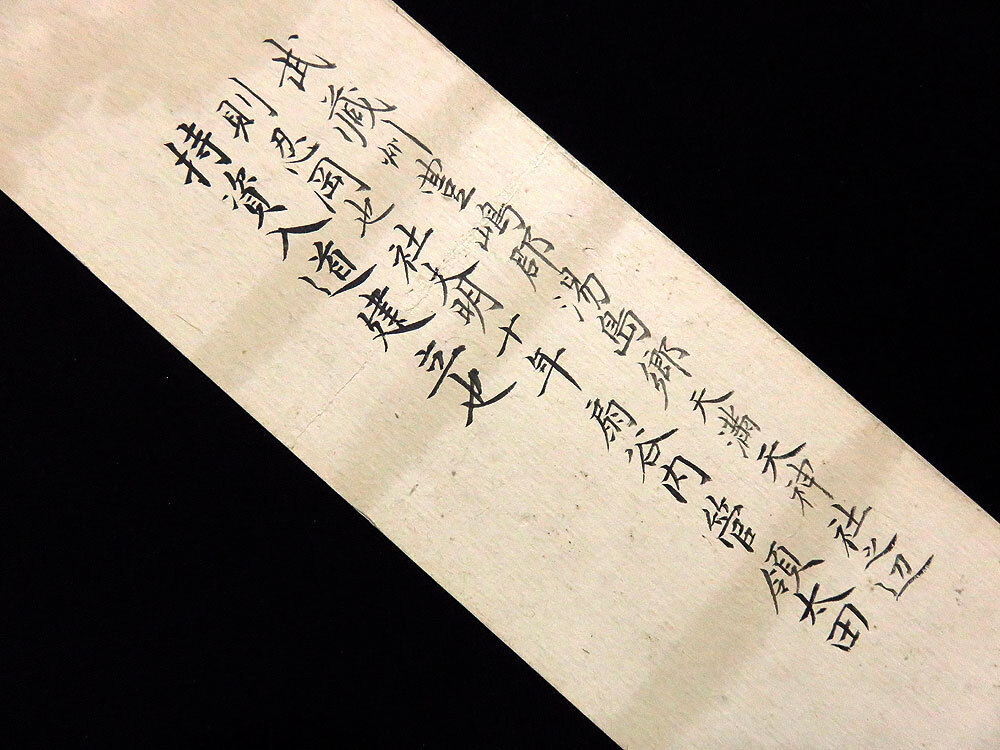 武蔵州豊嶋郡湯島郷天満天神社之辺
則忍岡也社文明十年扇谷内管領太田
持資入道建立也